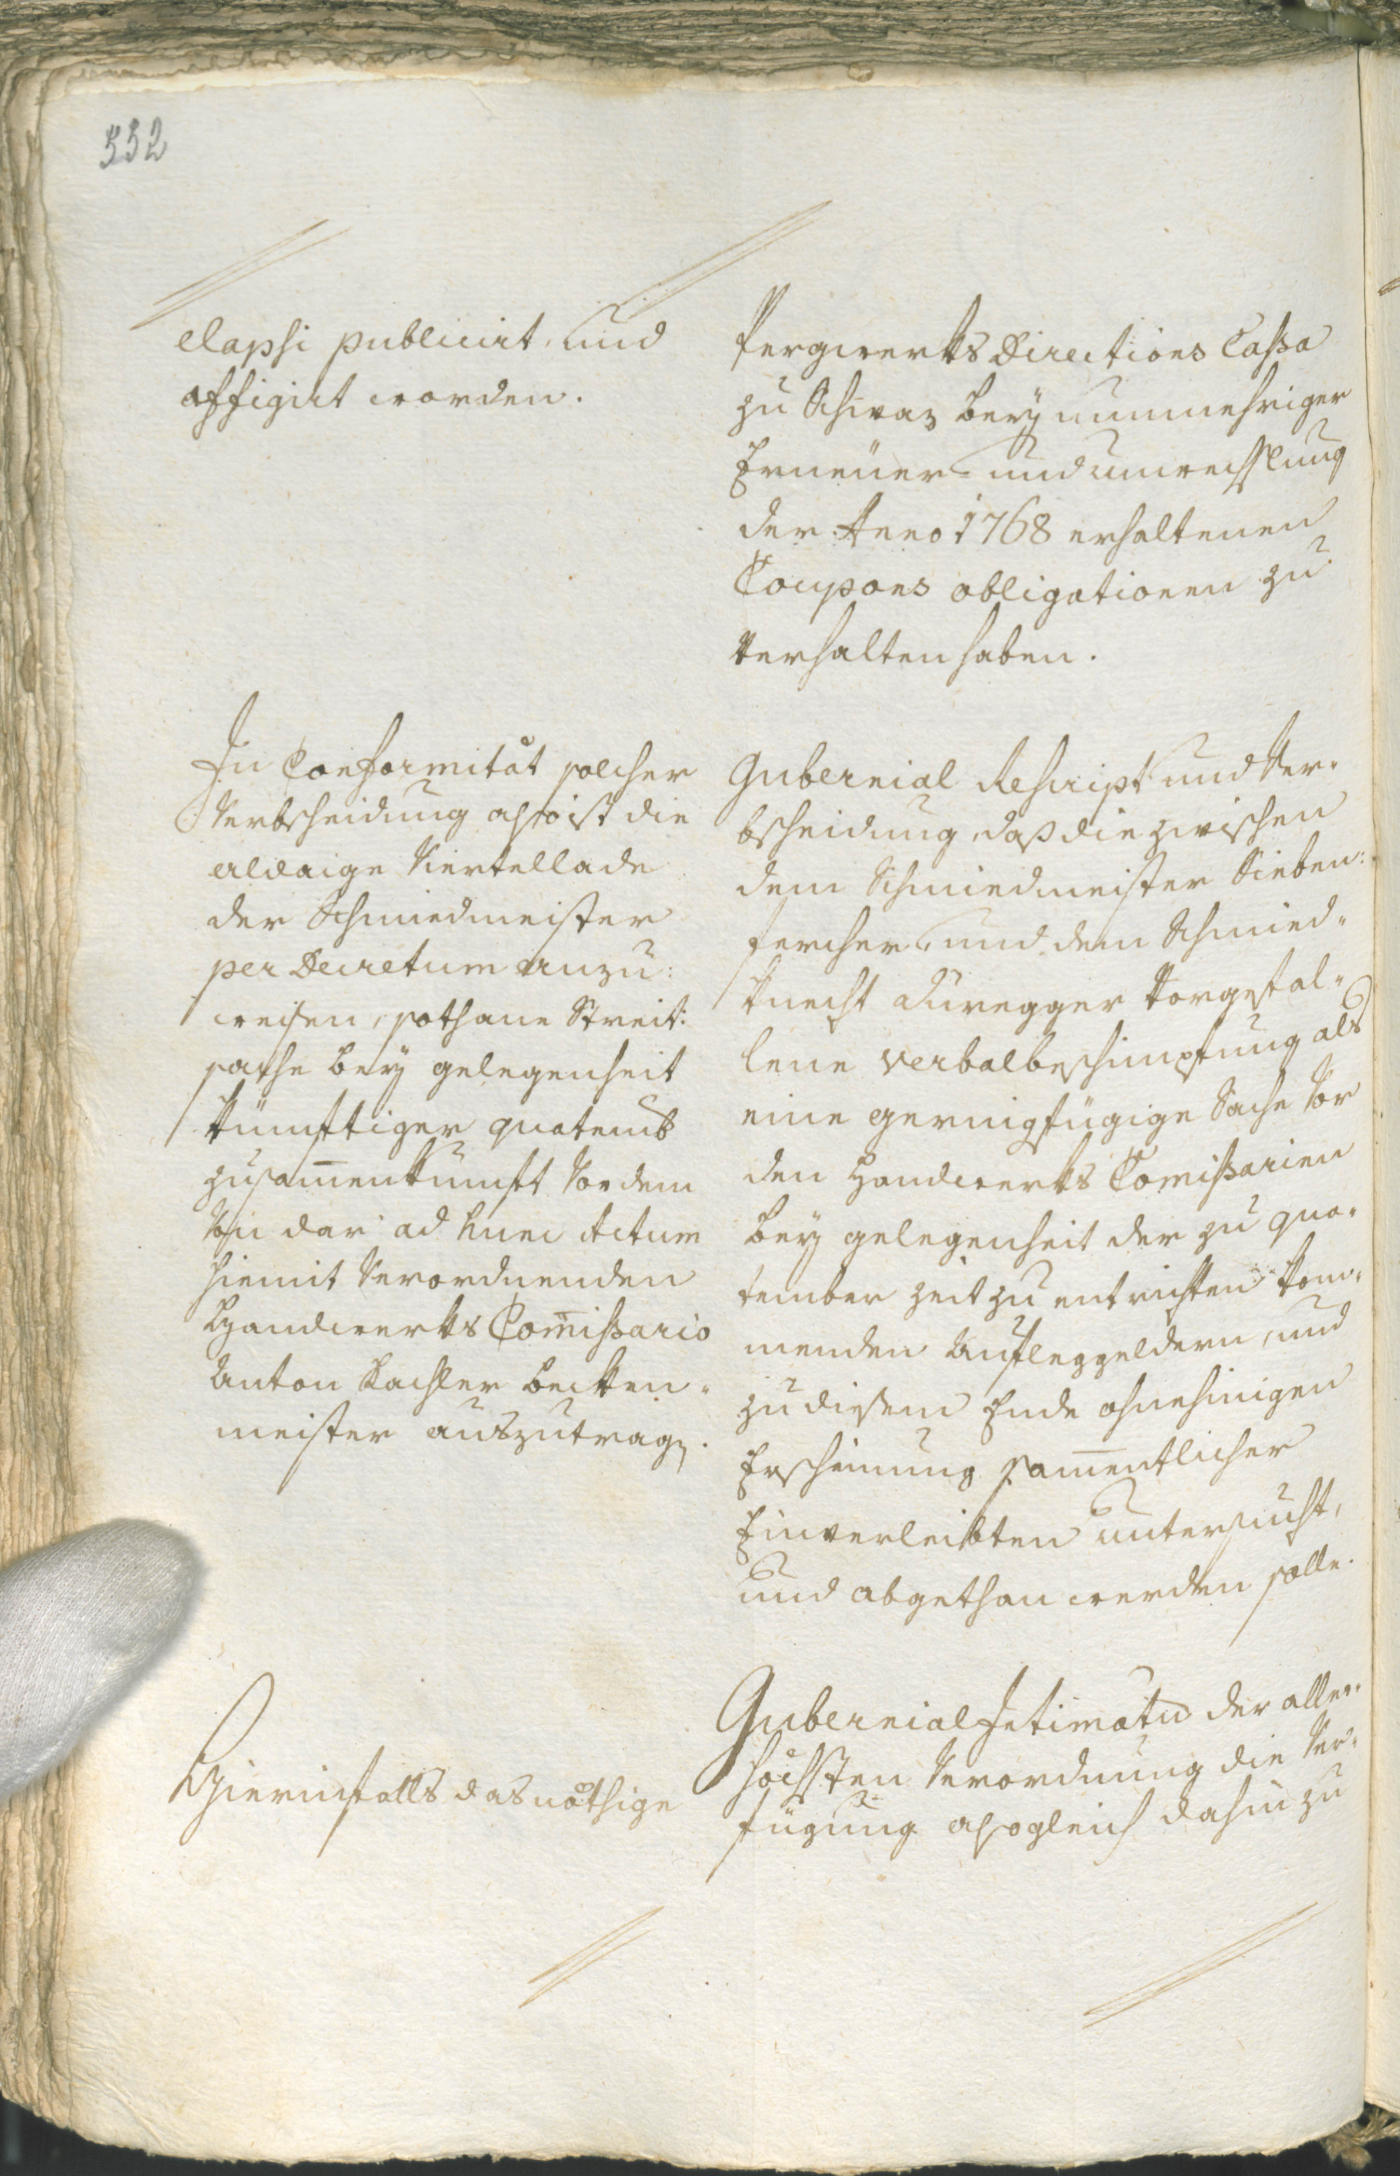 552
elapsi publicirt, und
affigirt worden.
In Conformität solcher
Verbscheidung also ist die
aldaige Viertellade
der Schmiedmeister
per Decretum anzu:
weisen, sothane Streit:
sache bey gelegenheit
künfftiger quatemb
zusam̅enkunfft vor dem
von dar ad hunc Actum
hiemit Verordnenden
Handwerks Com̅issario
Anton Kachler becken„
meister auszutrag.
Hierinfalls das nöthige
Pergwerks Directions Cassa
zu Schwaz bey nunmehriger
Erneüer- und umwechslung
der Anno 1768 erhaltenen
Coupons obligationen zu
verhalten haben.
Gubernial Rescript und Ver„
bscheidung, daß die zwischen
dem Schmiedmeister Sieben:
fercher, und dem Schmied„
knecht Duregger vorgefal„
lene verbalbeschimpfung als
eine geringfügige Sache vor
den Handwerks Comissarien
bey gelegenheit der zu qua„
tember zeit zu entrichten kom„
menden Aufleggeldern, und
zu diesem Ende ohnehinigen
Erscheinung sam̅entlicher
Einverleibten untersucht,
und abgethan werden solle.
Gubernial Intimatum der aller„
höchsten Verordnung die Ver„
fügung also gleich dahin zu